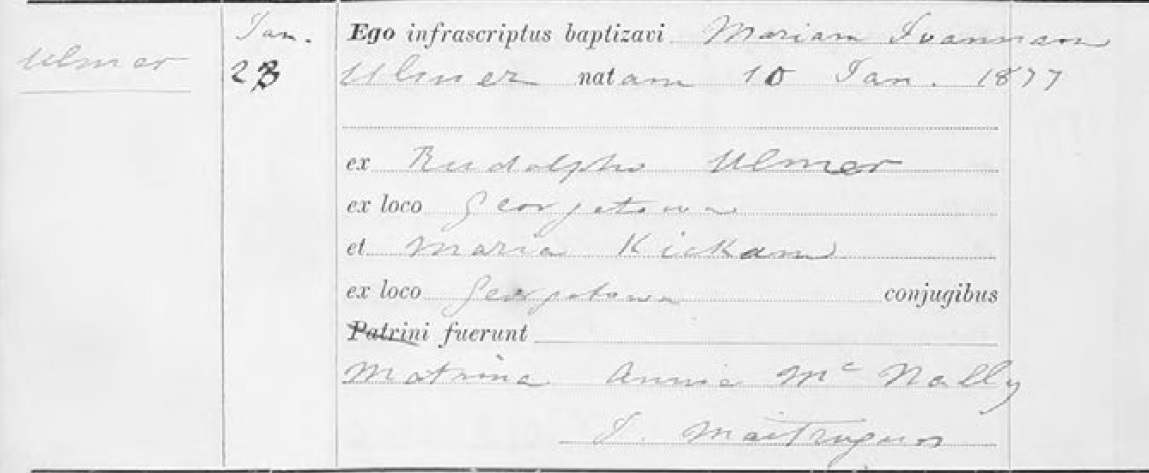 Ulmer
Jan.
28
Ego infrascriptus baptizavi Mariam Joannam
Ulmer natam 10 Jan. 1877
ex Rudolpho Ulmer
ex loco Georgetown
et Maria Kickam
ex loco Georgetown conjugibus
Patrini fuerunt
Matrina Annie Mc Nally
J.